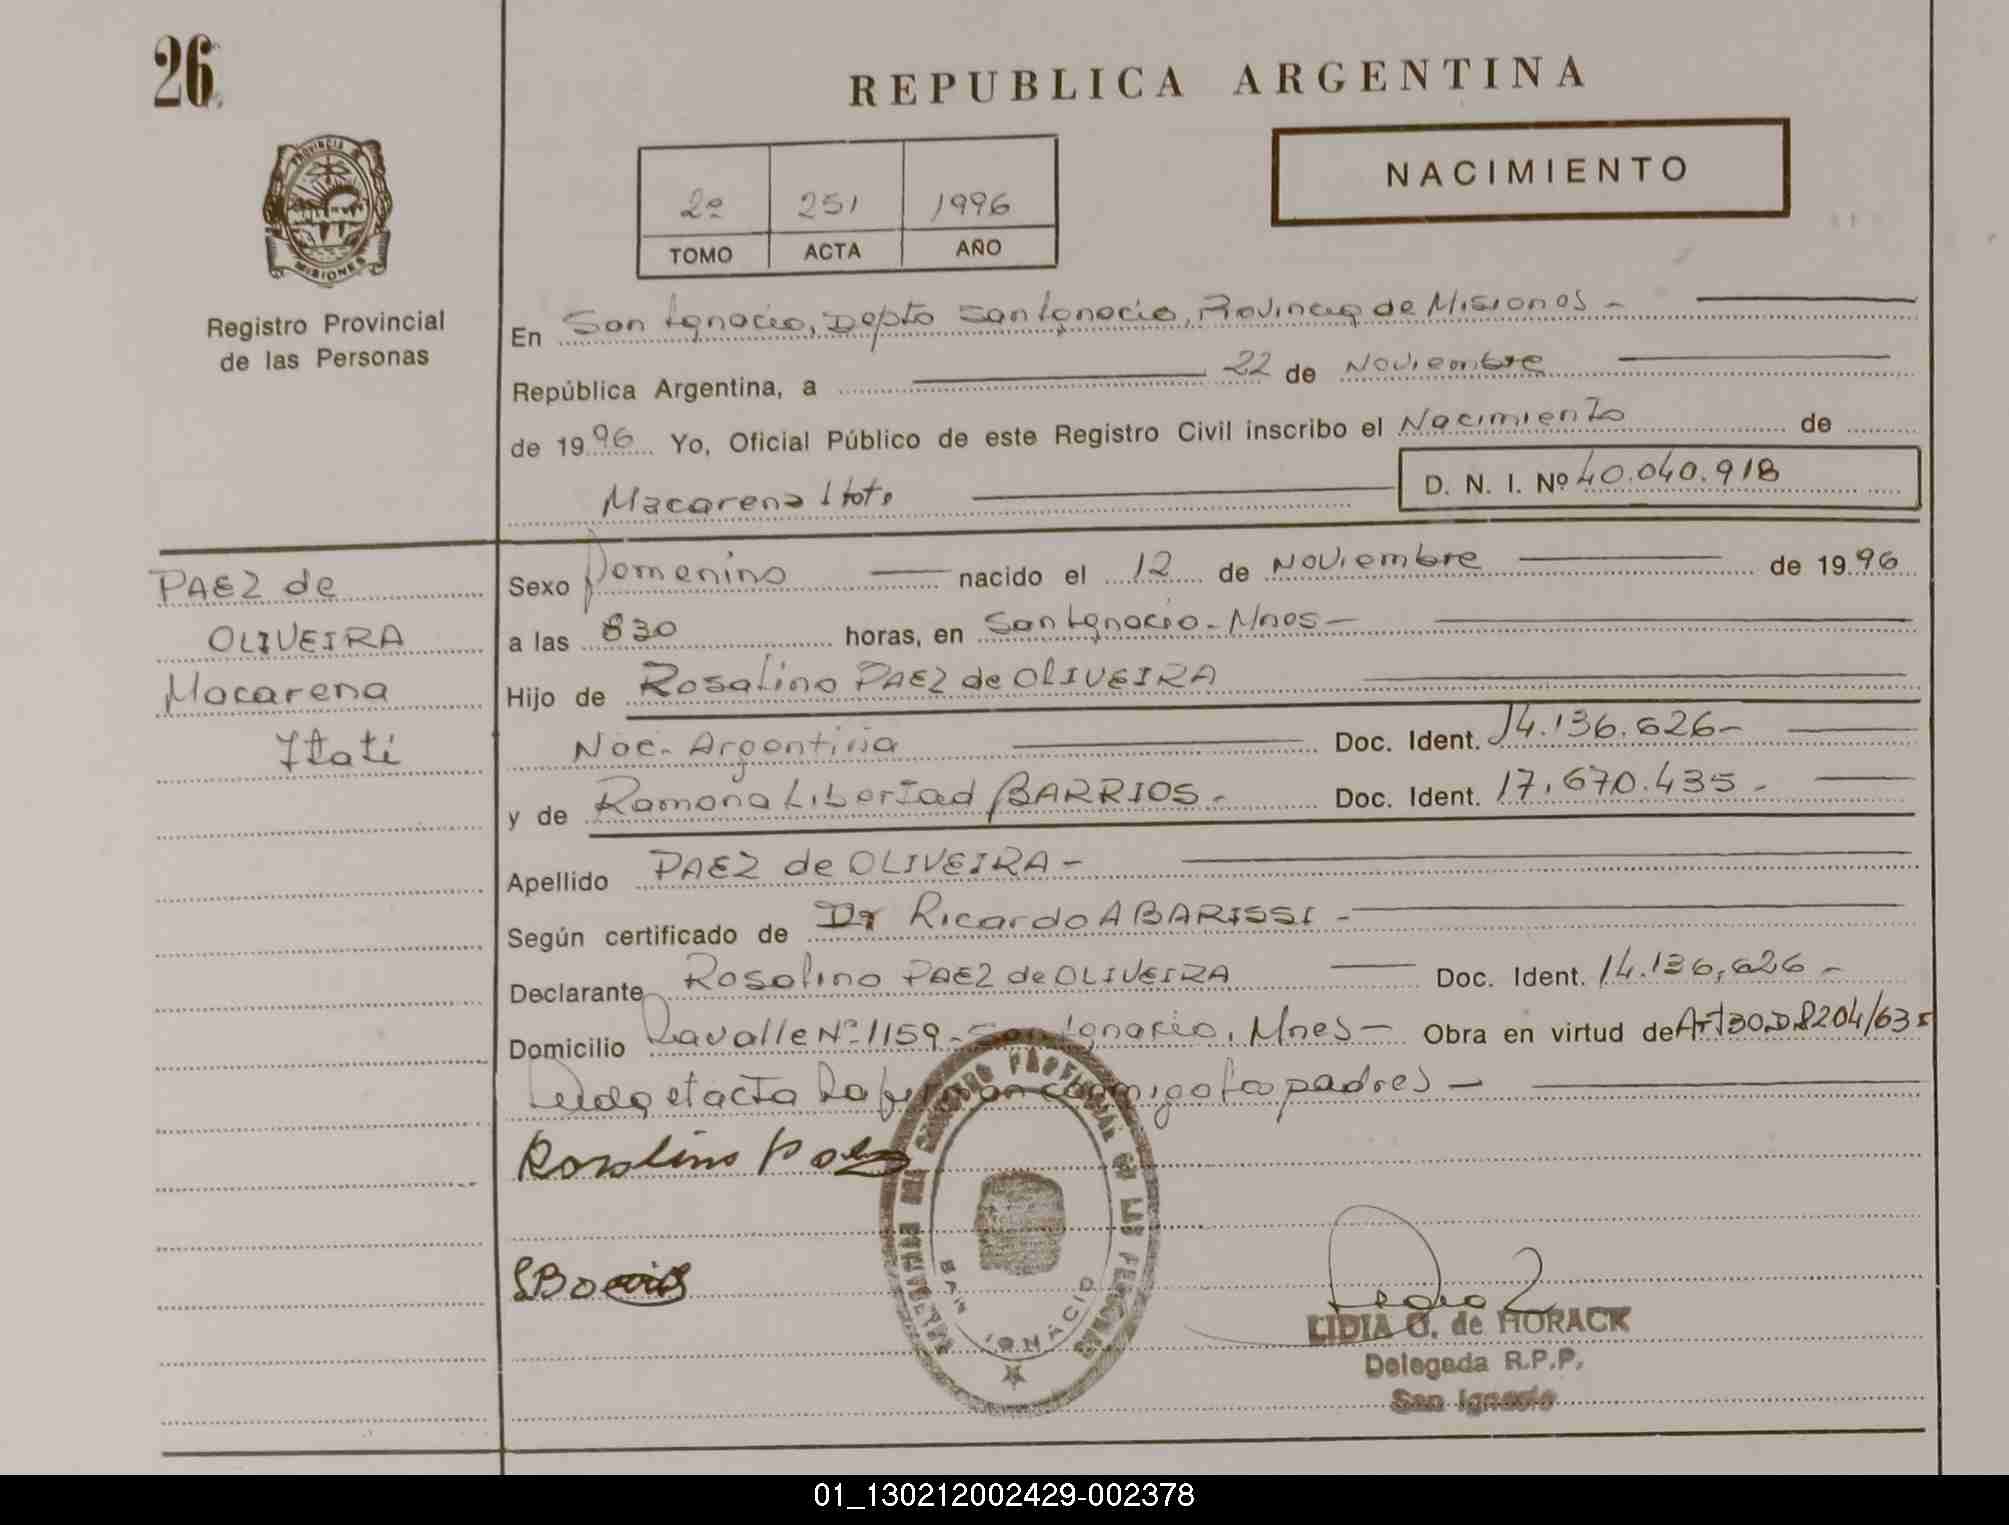 26
REPUBLICA ARGENTINA
NACIMIENTO
2º 251 1996
TOMO ACTA AÑO
PROVINCIA
MISIONES
Registro Provincial
de las Personas
En San Ignacio, Depto San Ignacio, Provincia de Misiones -
República Argentina, a 22 de Noviembre
de 1996 Yo, Oficial Público de este Registro Civil inscribo el Nacimiento de
Macarena Itati D. N. I. Nº 40.040.918
PAEZ de
OLIVEIRA
Macarena
Itati
Sexo Femenino nacido el 12 de Noviembre de 1996
a las 830 horas, en San Ignacio - Mnes -
Hijo de Rosalino PAEZ de OLIVEIRA
Nac. Argentina Doc. Ident. 14.136.626 -
y de Ramona Libertad BARRIOS - Doc. Ident. 17.670.435 -
Apellido PAEZ de OLIVEIRA -
Según certificado de Dr Ricardo A BARISSI -
Declarante Rosalino PAEZ de OLIVEIRA Doc. Ident. 14.136.626 -
Domicilio Lavalle Nº 1159 - San Ignacio, Mnes - Obra en virtud de Art 30 D. 8204/63
Leida el acta la firman conmigo los padres -
Rosalino Paez
REGISTRO PROVINCIAL DE LAS PERSONAS
SAN IGNACIO
LIDIA G. de HORACK
Delegada R.P.P.
San Ignacio
01_130212002429-002378